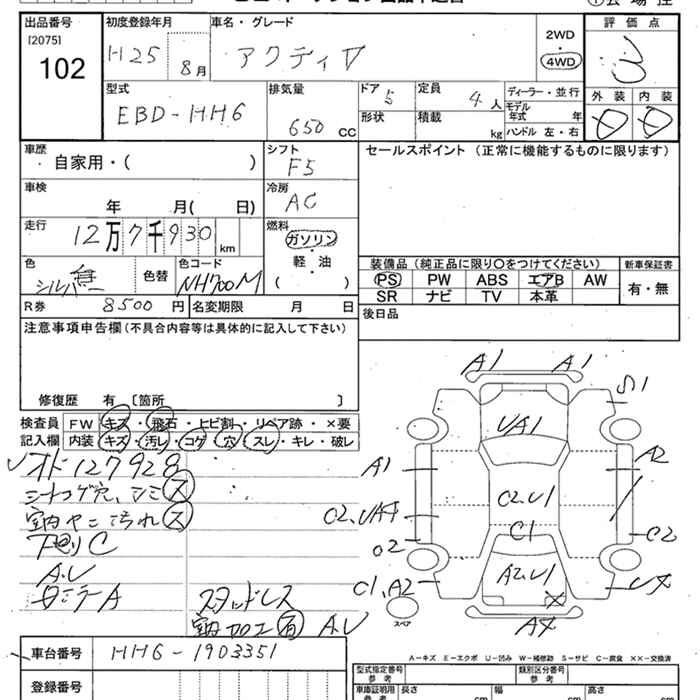 出品番号 初度登録年月 車名・グレード 2WD 評価点
[2075]
102
H25 8月 アクティV 4WD
型式 排気量 ドア 定員 ディーラー・並行 外装 内装
EBD-HH6 650 CC 5 4人 モデル年式 年
形状 積載 kg ハンドル 左・右
車歴 シフト セールスポイント (正常に機能するものに限ります)
自家用・( ) F5
車検 冷房
年 月( 日) AC
走行 燃料
12万7千930 km ガソリン
軽・油
( )
色 色替 色コード 装備品 (純正品に限り○をつけてください) 新車保証書
シルバー 無 NH700M PS PW ABS エアB AW 有・無
SR ナビ TV 本革
R券 8500円 名変期限 月 日 後日品
注意事項申告欄(不具合内容等は具体的に記入して下さい)
修復歴 有 〔箇所 〕
検査員 FW キズ・飛石・ヒビ割・リペア跡・×要
記入欄 内装 キズ・汚レ・コゲ・穴・スレ・キレ・破レ
オド127928
シートコゲ穴、シミ ス
室内ヤニ汚れ ス
下廻りC
A.U
スタッドレス
室内加工 有 A.U
A1 A1
S1
UA1
A1 A2
C2.U1
C1
C2
A2.U1
C1,A2
スペア
A-キズ E-エクボ U-凹み W-補修跡 S-サビ C-腐食 ××-交換済
車台番号 HH6-1903351
登録番号
型式指定番号 参考 類別区分番号 参考
車庫証明用 参考 長さ cm 幅 cm 高さ cm